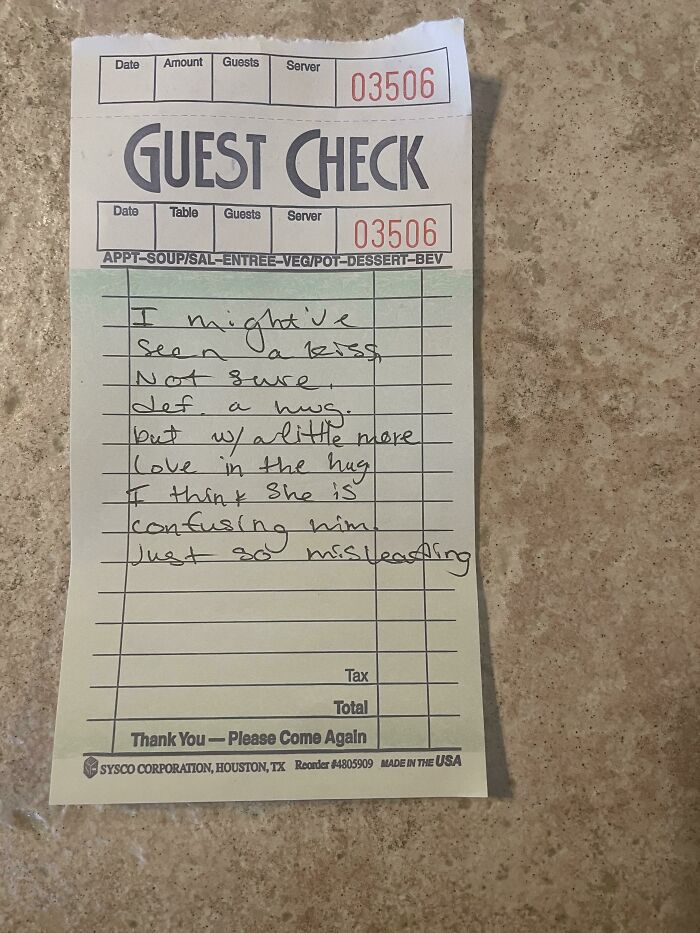 Date Amount Guests Server 03506
GUEST CHECK
Date Table Guests Server 03506
APPT-SOUP/SAL-ENTREE-VEG/POT-DESSERT-BEV
I might've
seen a kiss
Not sure.
def. a hug.
but w/ a little more
love in the hug
I think she is
confusing him.
Just so misleading
Tax
Total
Thank You — Please Come Again
SYSCO CORPORATION, HOUSTON, TX Reorder #4805909 MADE IN THE USA